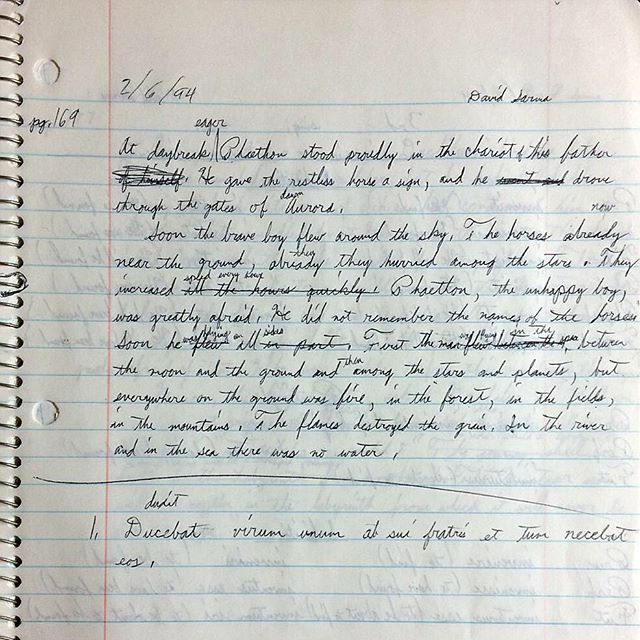 2/6/94 David Sarma
pg. 169 eager
At daybreak, Phaethon stood proudly in the chariot of his father
of himself. He gave the restless horse a sign, and he drove
dawn
through the gates of Aurora. now
Soon the brave boy flew around the sky. The horses already
they
near the ground, already they hurried among the stars. They
speed every hour
increased till the hours quickly! Phaethon, the unhappy boy,
was greatly afraid. He did not remember the names of the horses
was flying on sides was flying in the
Soon he flew all in part. First the man flew between
then
the moon and the ground and among the stars and planets, but
everywhere on the ground was fire, in the forest, in the fields,
in the mountains. The flames destroyed the grain. In the river
and in the sea there was no water.
duxit
1. Ducebat virum unum ab sui fratris et tum necebat
eos.